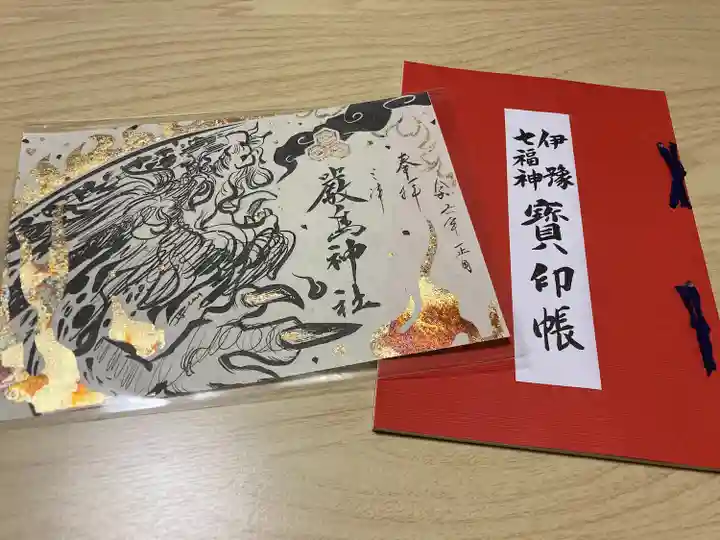 年 正月
奉拝
三津
嚴島神社
伊豫
七福神
寶印帳